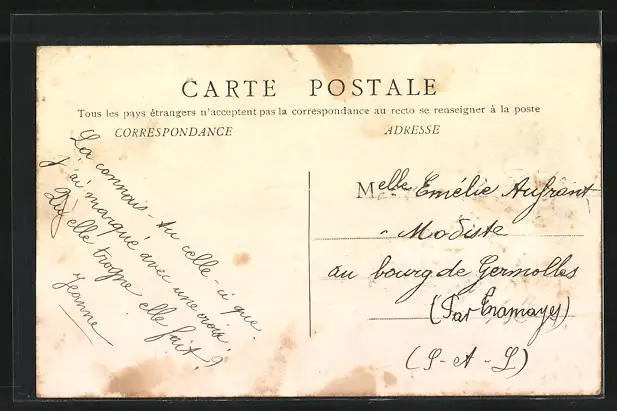 CARTE POSTALE
Tous les pays étrangers n'acceptent pas la correspondance au recto se renseigner à la poste
CORRESPONDANCE
ADRESSE
La connais-tu celle-ci que
j'ai marqué avec une croix?
Qu'elle trogne elle fait!
Jeanne
Melle Emélie Aufrant
Modiste
au bourg de Germolles
(Par Tramayes)
(S-et-L)